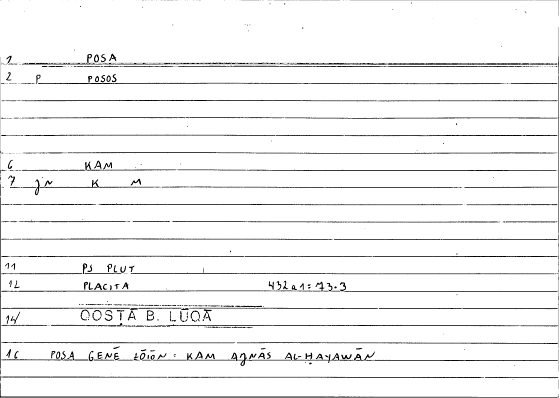 1 POSA
2 P POSOS
6 KAM
7 jN K M
11 PS PLUT
12 PLACITA 432a1=73.3
14 QOSṬĀ B. LŪQĀ
16 POSA GENĒ ZŌIŌN: KAM AJNĀS AL-ḤAYAWĀN